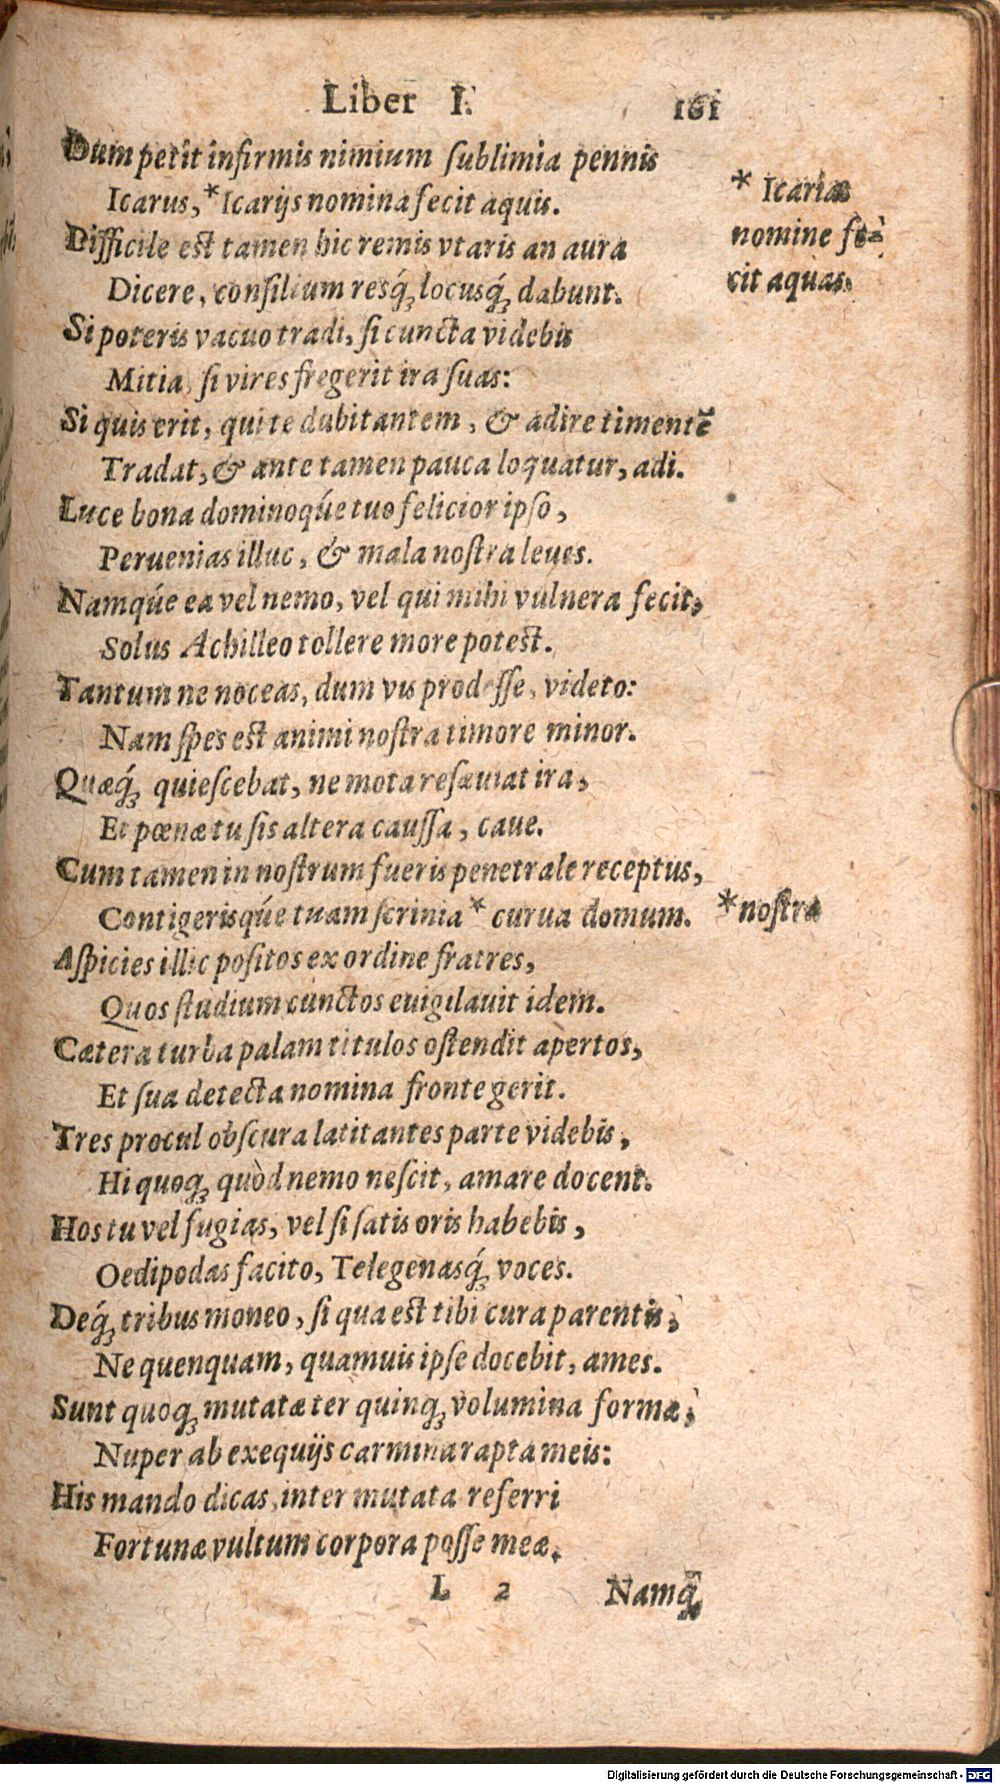 Liber I. 161
Dum petit infirmis nimium ſublimia pennis
Icarus, * Icarijs nomina fecit aquis.
* Icariæ
nomine fe-
cit aquas.
Difficile est tamen hic remis vtaris an aura
Dicere, conſilium resq́; locusq́; dabunt.
Si poteris vacuo tradi, ſi cuncta videbis
Mitia, ſi vires fregerit ira ſuas:
Si quis erit, qui te dubitantem, & adire timentē
Tradat, & ante tamen pauca loquatur, adi.
Luce bona dominoq́ue tuo felicior ipſo,
Peruenias illuc, & mala noſtra leues.
Namq́ue ea vel nemo, vel qui mihi vulnera fecit,
Solus Achilleo tollere more potest.
Tantum ne noceas, dum vis prodeſſe, videto:
Nam ſpes est animi noſtra timore minor.
Quæq́; quieſcebat, ne mota reſæuiat ira,
Et pœnæ tu ſis altera cauſſa, caue.
Cum tamen in noſtrum fueris penetrale receptus,
Contigerisq́ue tuam ſcrinia * curua domum.
* noſtra
Aſpicies illic poſitos ex ordine fratres,
Quos ſtudium cunctos euigilauit idem.
Cætera turba palam titulos oſtendit apertos,
Et ſua detecta nomina fronte gerit.
Tres procul obſcura latitantes parte videbis,
Hi quoq; quòd nemo neſcit, amare docent.
Hos tu vel fugias, vel ſi ſatis oris habebis,
Oedipodas facito, Telegenasq́; voces.
Deq́; tribus moneo, ſi qua est tibi cura parentis,
Ne quenquam, quamuis ipſe docebit, ames.
Sunt quoq; mutatæ ter quinq; volumina formæ,
Nuper ab exequijs carmina rapta meis:
His mando dicas, inter mutata referri
Fortunæ vultum corpora poſſe meæ.
L 2 Namq́;
Digitalisierung gefördert durch die Deutsche Forschungsgemeinschaft - DFG